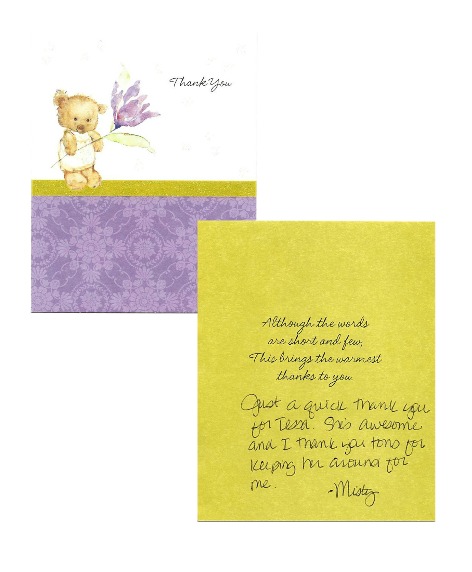 Thank You
Although the words
are short and few,
This brings the warmest
thanks to you
Just a quick thank you
for Tessa. She's awesome
and I thank you tons for
keeping her around for
me.
-Misty